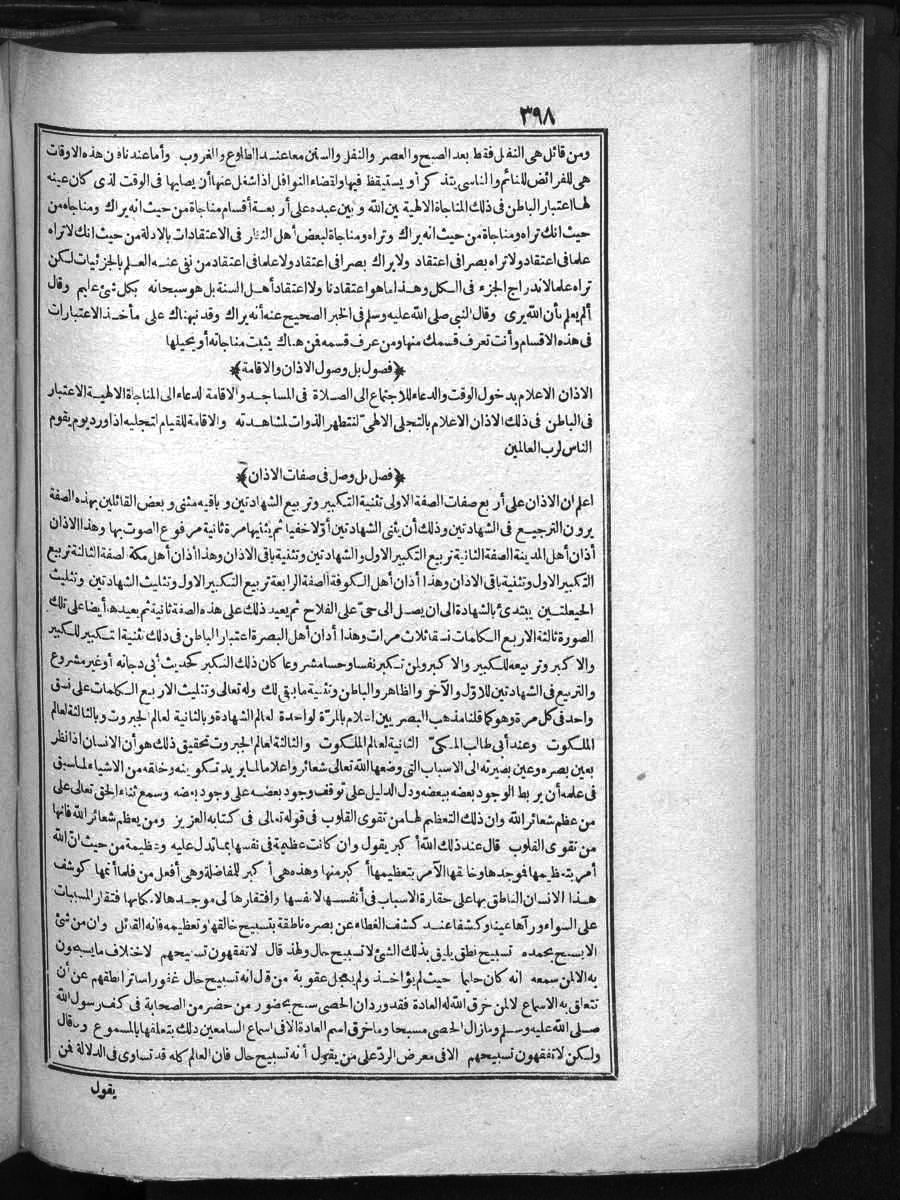 ٣٩٨
ومن قائل هى النفل فقط بعد الصبح والعصر والنفل والسنن معا عند الطلوع والغروب وأما عندنا فان هذه الاوقات
هى للفرائض للنائم والناسى يتذكر أو يستيقظ فيها ولقضاء النوافل اذا شغل عنها أن يصليها فى الوقت لذى كان عينه
لها اعتبار الباطن فى ذلك المناجاة الالهية بين الله وبين عبده على أربعة أقسام مناجاة من حيث انه يراك ومناجاه من
حيث انك تراه ومناجاة من حيث انه يراك وتراه ومناجاة لبعض أهل النظر فى الاعتقادات بالادلة من حيث انك لا تراه
علما فى اعتقاد ولا تراه بصرا فى اعتقاد ولا يراك بصرا فى اعتقاد ولا علما فى اعتقاد من نفى عنه العلم بالجزئيات لكن
تراه علما لاندراج الجزء فى الكل وهذا ما هو اعتقادنا ولا اعتقاد أهل السنة بل هو سبحانه بكل شئ عليم وقال
ألم يعلم بأن الله يرى وقال النبى صلى الله عليه وسلم فى الخبر الصحيح عنه أنه يراك وقد نبهناك على مأخذ الاعتبارات
فى هذه الاقسام وأنت تعرف قسمك منها ومن عرف قسمه فمن هناك يثبت مناجاته أو يحيلها
﴿فصول بل وصول الاذان والاقامة﴾
الاذان الاعلام بدخول الوقت والدعاء للاجتماع الى الصلاة فى المساجد والاقامة لدعاء الى المناجاة الالهية الاعتبار
فى الباطن فى ذلك الاذان الاعلام بالتجلى الالهىّ لتتطهر الذوات لمشاهدته والاقامة للقيام لتجليه اذا ورد يوم يقوم
الناس لرب العالمين
﴿فصل بل وصل فى صفات الاذان﴾
اعلم ان الاذان على أربع صفات الصفة الاولى تثنية التكبير وتربيع الشهادتين وباقيه مثنى وبعض القائلين بهذه الصفة
يرون الترجيع فى الشهادتين وذلك أن يثنى الشهادتين أوّلا خفيا ثم يثنيها مرة ثانية مرفوع الصوت بها وهذا الاذان
أذان أهل المدينة الصفة الثانية تربيع التكبير الاول والشهادتين وتثنية باقى الاذان وهذا أذان أهل مكة لصفة الثالثة تربيع
التكبير الاول وتثنية باقى الاذان وهذا أذان أهل الكوفة الصفة الرابعة تربيع التكبير الاول وتثليث الشهادتين وتثليث
الحيعلتين يبتدئ بالشهادة الى ان يصل الى حىّ على الفلاح ثم يعيد ذلك على هذه الصفة ثانية ثم يعيدها أيضا على تلك
الصورة ثالثة الاربع الكلمات نسقا ثلاث مرات وهذا أذان أهل البصرة اعتبار الباطن فى ذلك تثنية التكبير للكبير
والاكبر وتربيعه للكبير والاكبر ولمن تكبر نفسا وحسا مشروعا كان ذلك التكبر كحديث أبى دجانه أو غير مشروع
والتربيع فى الشهادتين للاوّل والآخر والظاهر والباطن وتثنية ما بقى لك وله تعالى وتثليث الاربع الكلمات على نسق
واحد فى كل مرة وهو كما قلنا مذهب البصريين اعلام بالمرّة لواحدة لعالم الشهادة وبالثانية لعالم الجبروت وبالثالثة لعالم
الملكوت وعند أبى طالب المكىّ الثانية لعالم الملكوت والثالثة لعالم الجبروت تحقيق ذلك هو أن الانسان اذا نظر
بعين بصره وعين بصيرته الى الاسباب التى وضعها الله تعالى شعائر واعلاما لما يريد تكوينه وخلقه من الاشياء لما سبق
فى علمه أن يربط الوجود بعضه ببعضه ودل الدليل على توقف وجود بعضه على وجود بعضه وسمع ثناء الحق تعالى على
من عظم شعائر الله وان ذلك التعظيم لها من تقوى القلوب فى قوله تعالى فى كتابه العزيز ومن يعظم شعائر الله فانها
من تقوى القلوب قال عند ذلك الله أكبر يقول وان كانت عظيمة فى نفسها بما تدل عليه وعظيمة من حيث انّ الله
أمر بتعظيمها فوجدها وخالقها الآمر بتعظيمها أكبر منها وهذه هى أكبر للمفاضلة وهى أفعل من فلما أتمها كوشف
هذا الانسان الناطق بها على حقارة الاسباب فى أنفسها لانفسها وافتقارها لى موجدها لامكانها فتقار المسببات
على السواء ورآها عينا وكشفا عند كشف الغطاء عن بصره ناطقة بتسبيح خالقها وتعظيمه فانه القائل وان من شئ
الا يسبح بحمده تسبيح نطق يليق بذلك الشئ لا تسبيح حال ولهذ قال لا تفقهون تسبيحهم لاختلاف ما يسبحون
به الا لمن سمعه انه كان حليما حيث لم يؤاخذ ولم يعجل عقوبة من قال انه تسبيح حال غفورا ستر نطقهم عن أن
تتعلق به الاسماع لا لمن خرق الله له العادة فقد ورد ان الحصى سبح بحضور من حضر من الصحابة فى كف رسول الله
صلى الله عليه وسلم وما زال الحصى مسبحا وما خرق اسم العادة الا فى اسماع السامعين ذلك بتعلقها بالمسموع وما قال
ولكن لا تفقهون تسبيحهم الا فى معرض الردّ على من يقول أنه تسبيح حال فان العالم كله قد تساوى فى الدلالة فمن
يقول